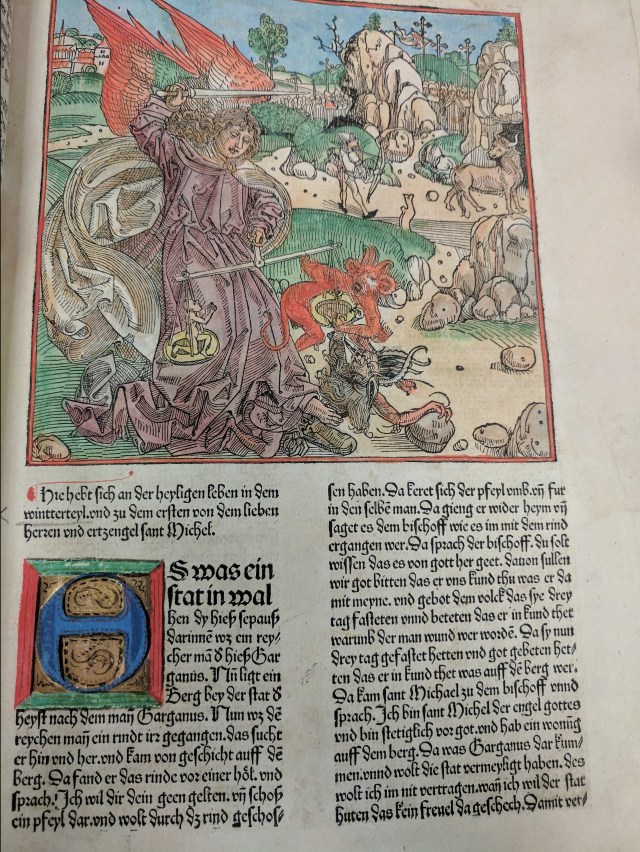 Hie hebt sich an der heyligen leben in dem
wintterteyl. vnd zu dem ersten von dem lieben
herren vnd ertzengel sant Michel.
ES was ein
stat in wal
hen dy hieß sepauß
darinnē wz ein rey-
cher mā d hieß Gar
ganus. Nū ligt ein
Berg bey der stat d
heyst nach dem man̄ Garganus. Nun wz dē
reychen man̄ ein rindt irr gegangen. das sucht
er hin vnd her. vnd kam von geschicht auff dē
Berg. Da fand er das rinde vor einer höl. vnd
sprach. Ich wil dir dein geen gelten. vn̄ schoß
ein pfeyl dar. vnd wolt durch dz rind geschos-
sen haben. Da keret sich der pfeyl vmb. vn̄ fur
in den selbē man. Da gieng er wider heym vn̄
saget es dem bischoff wie es im mit dem rind
ergangen wer. Da sprach der bischoff. du solt
wissen das es von got her geet. dauon süllen
wir got bitten das er vns kund thu was er da
mit meyne. vnd gebot dem volck das sye drey
tag fasteten vnnd beteten das er in kund thet
warumb der man wund wer wordē. Da sy nun
drey tag gefastet hetten vnd got gebeten het-
ten das er in kund thet was auff dē berg wer.
Da kam sant Michael zu dem bischoff vnnd
sprach. Ich bin sant Michel der engel gottes
vnd bin stetiglich vor got. vnd hab ein wonūg
auff dem berg. Da was Garganus dar kum-
men. vnnd wolt die stat vermeyligt haben. des
wolt ich im nit vertragen. wan̄ ich wil der stat
huten das kein freuel da geschech. Damit ver-